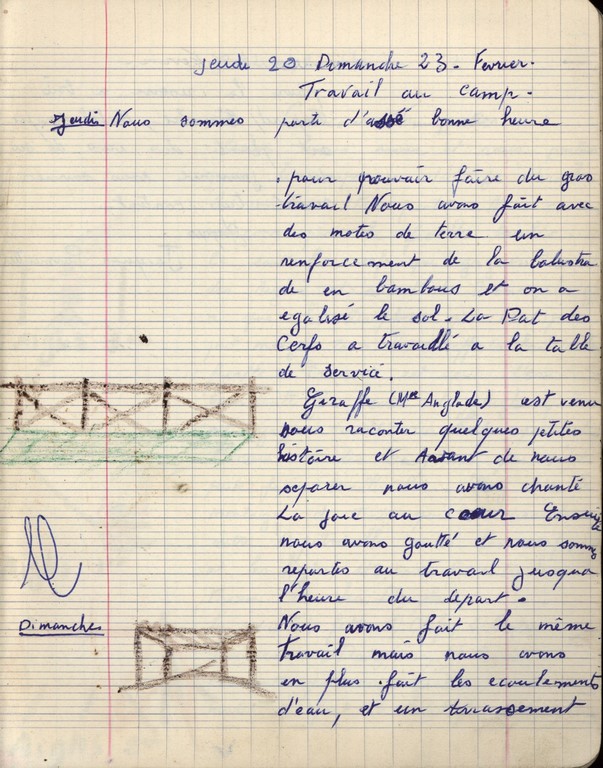 Jeudi 20 Dimanche 23 - Fevrier.
Travail au camp -
Jeudi Nous sommes parti d'assé bonne heure
pour pouvoir faire du gros
travail Nous avons fait avec
des motes de terre un
renforcement de la balustra
de en bambous et on a
egalisé le sol. La Pat des
Cerfs a travaillé a la table
de service.
Giraffe (Mr Anglade) est venu
nous raconter quelques petites
histoire et Avant de nous
separer nous avons chanté
La joie au cœur Ensuite
nous avons goutté et nous somm
repartes au travail jusqua
l'heure du depart.
Dimanches Nous avons fait le même
travail mais nous avons
en plus fait les ecoulements
d'eau, et un terrassement